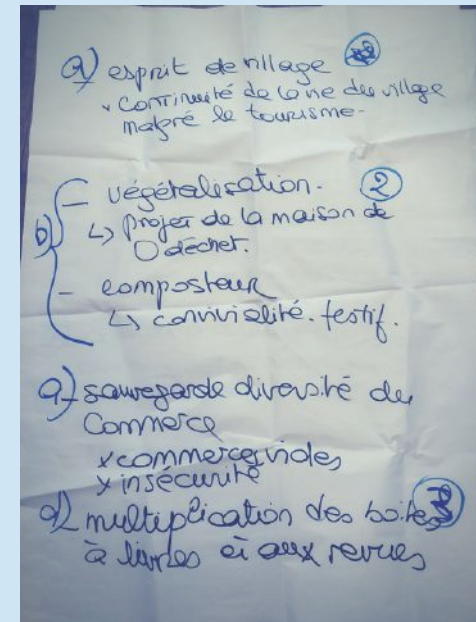 a) esprit de village
x Continuité de la vie du village
malgré le tourisme.
b) - végétalisation. 2
↳ projet de la maison de
0 déchet.
- composteur
↳ convivialité. festif.
a) sauvegarde diversité du
Commerce
x commerces vides
x insécurité
d) multiplication des boites 3
à livres et aux revues